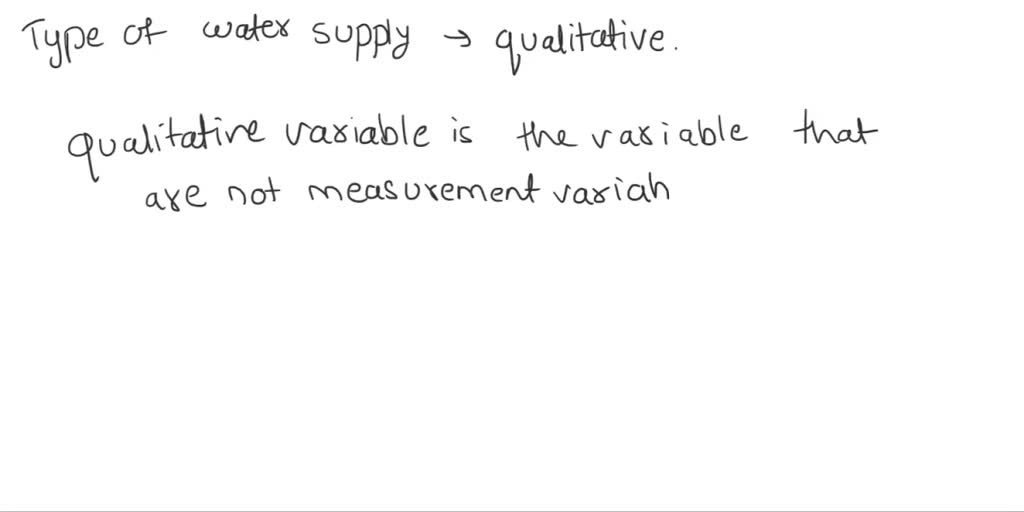 Type of water supply → qualitative.
qualitative variable is the variable that
are not measurement variah